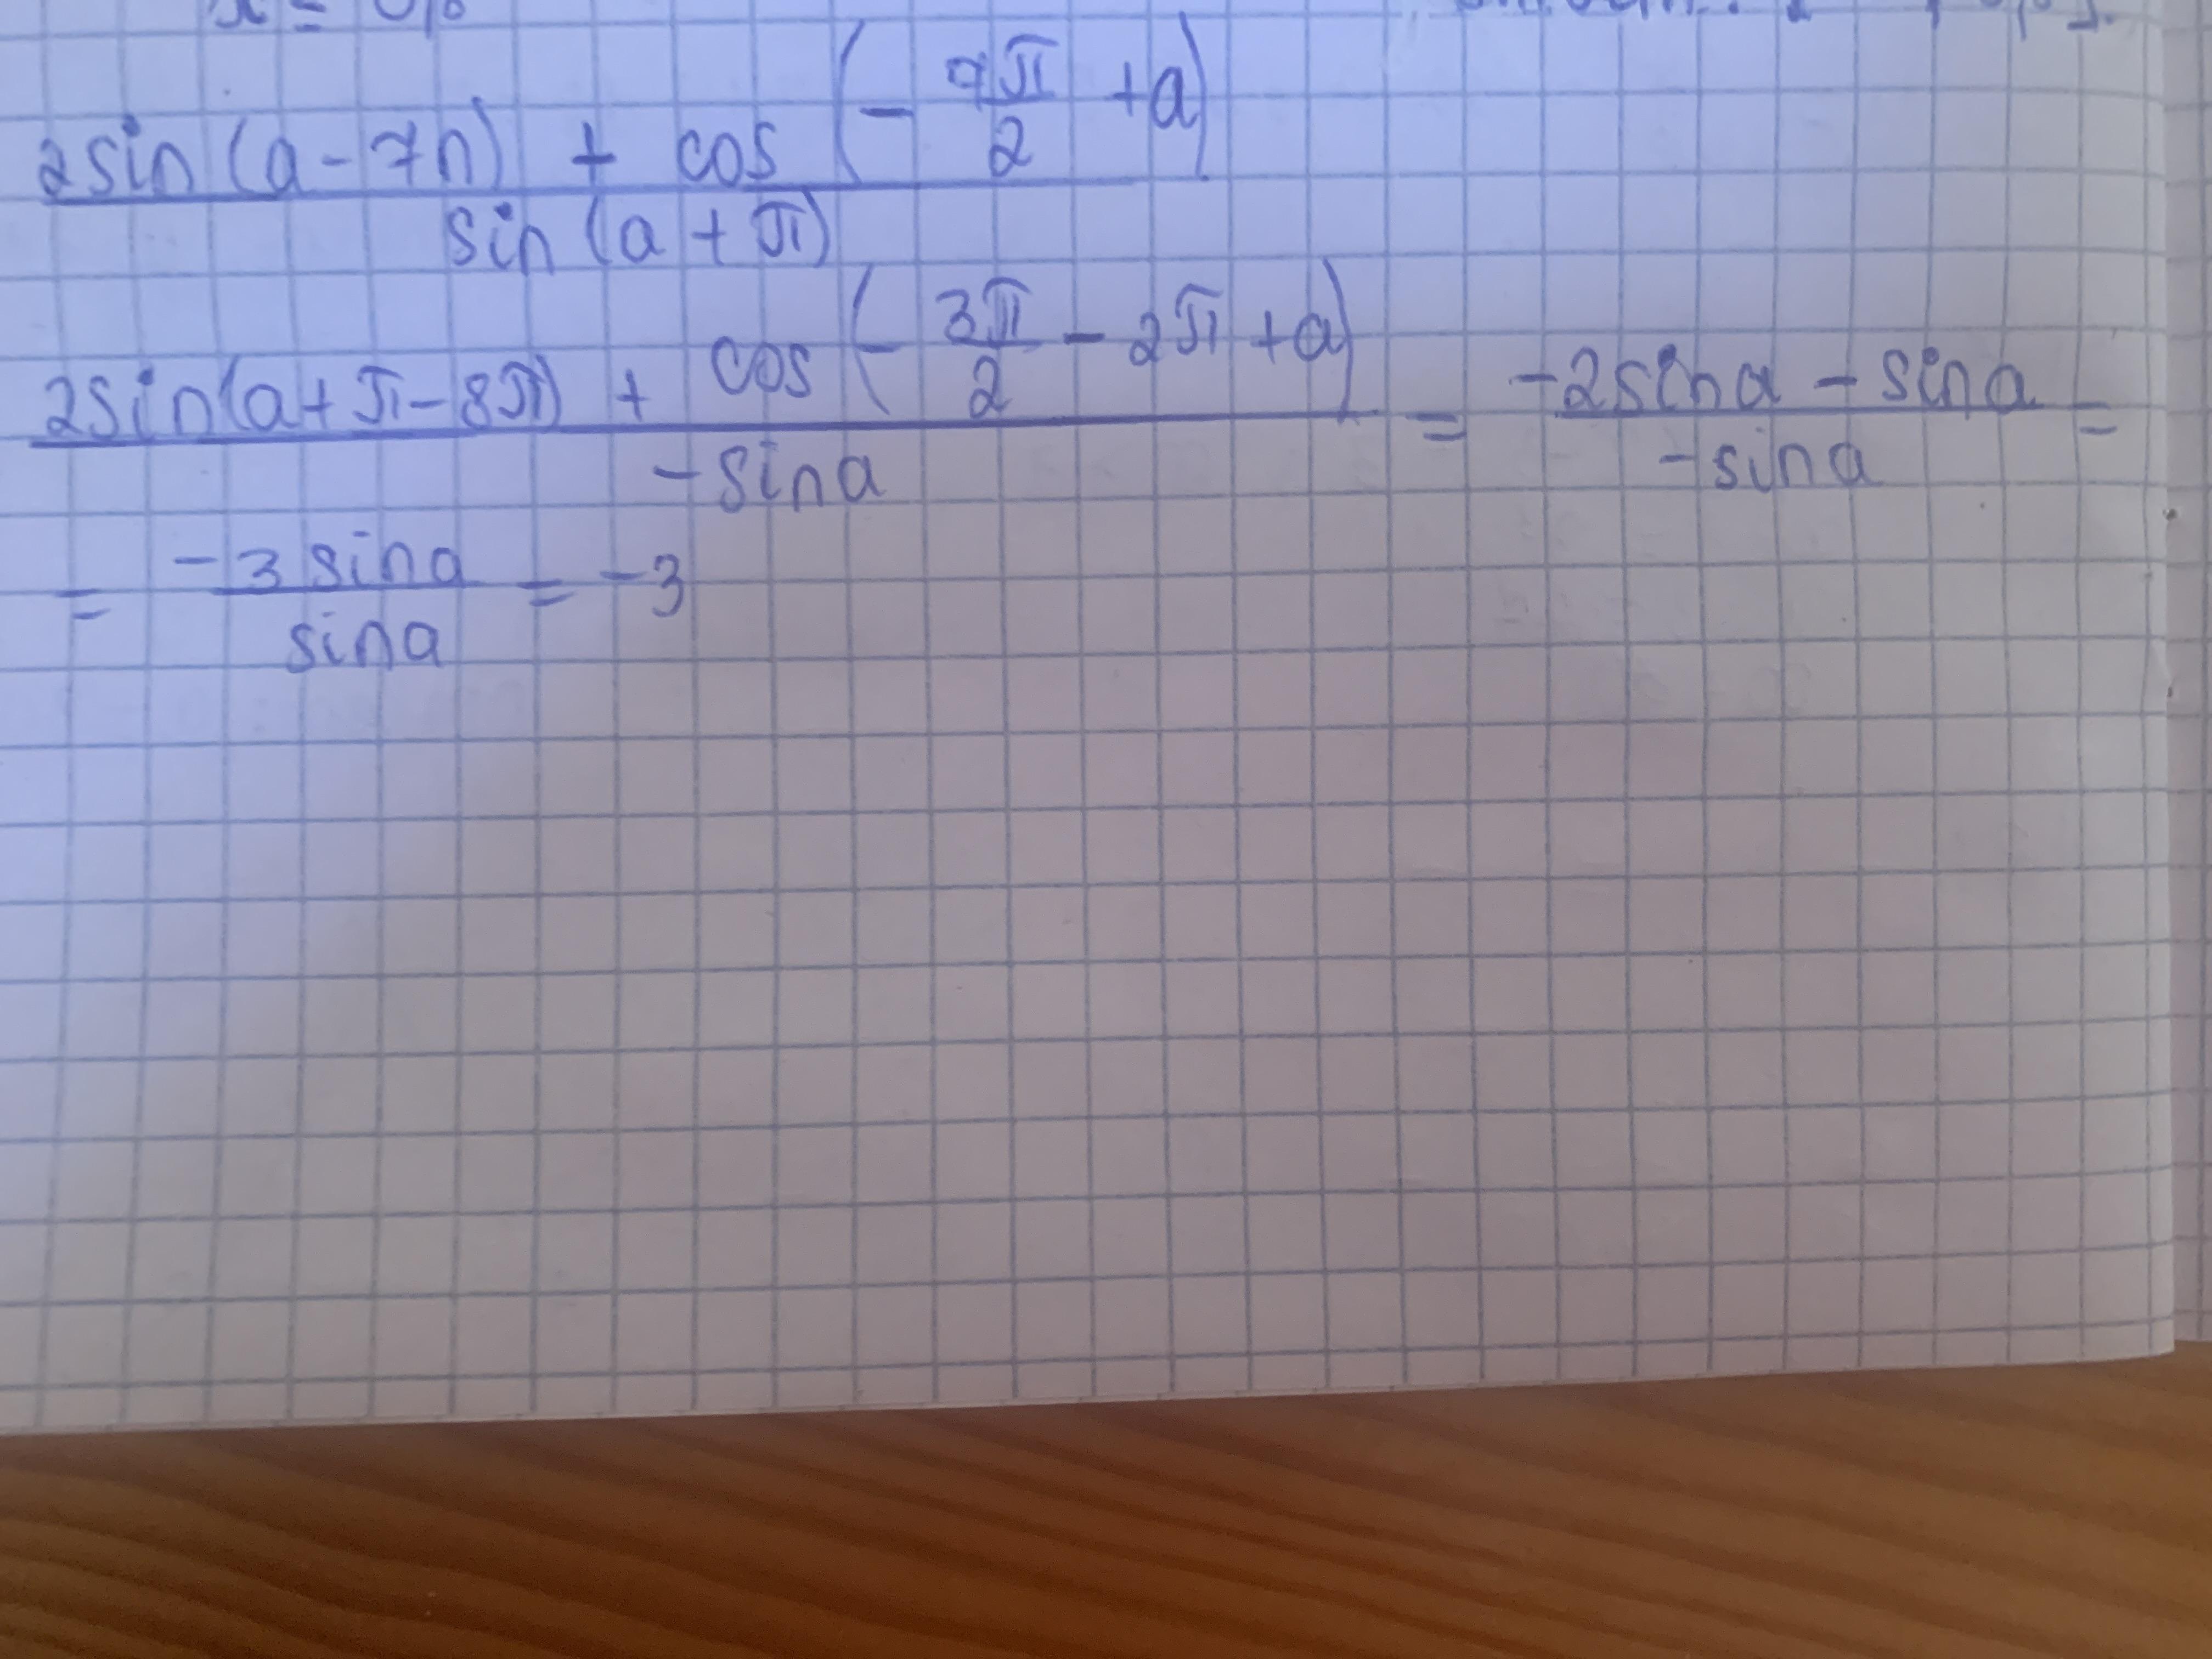 x =
2sin(a - 7π) + cos(- 7π/2 + a)
sin(a + π)
2sin(a + π - 8π) + cos(- 3π/2 - 2π + a) = -2sina - sina =
-sina -sina
= -3sina = -3
sina